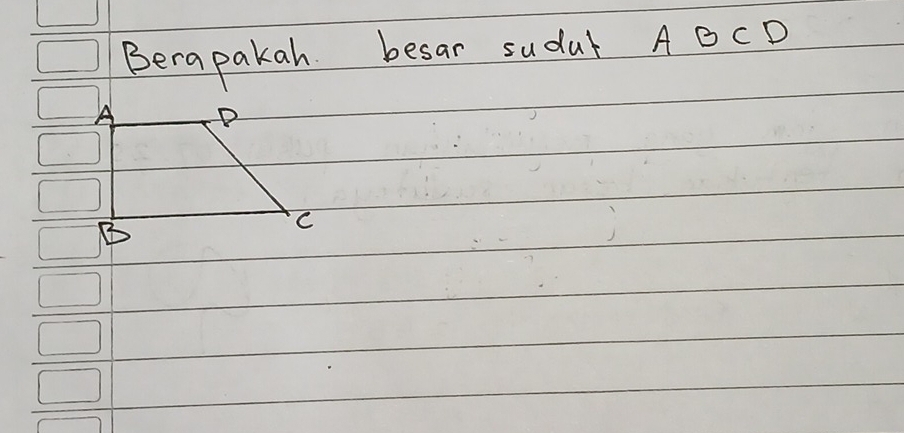 Berapakah. besar sudut A B C D
A D
B C